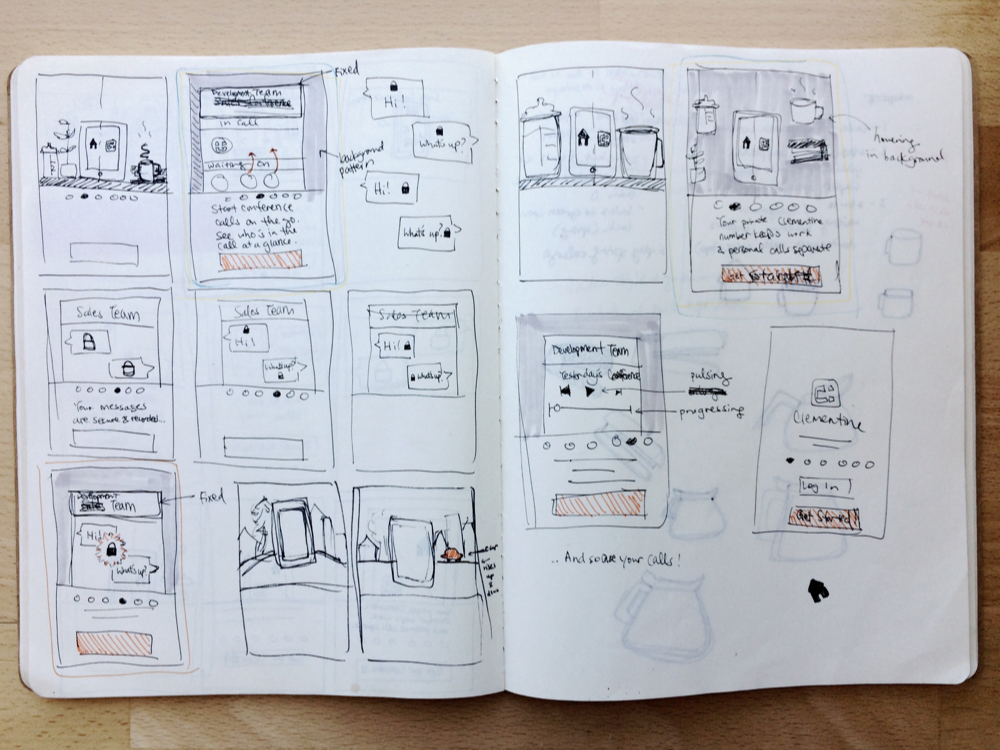 Fixed
Development Team
in Call
Waiting on
background
pattern
Start conference
calls on the go.
See who's in the
call at a glance.
Hi!
What's up?
Hi!
What's up?
Sales Team
Your messages
are secure & recorded...
Sales Team
Hi!
What's up?
Sales Team
Hi!
What's up?
Fixed
Development
Team
Hi!
What's up?
hovering
in background
Your private Clementine
number keeps work
& personal calls separate
Get started
Development Team
Yesterday's Conference
pulsing
progressing
Clementine
Log In
Get Started
... And so are your calls!